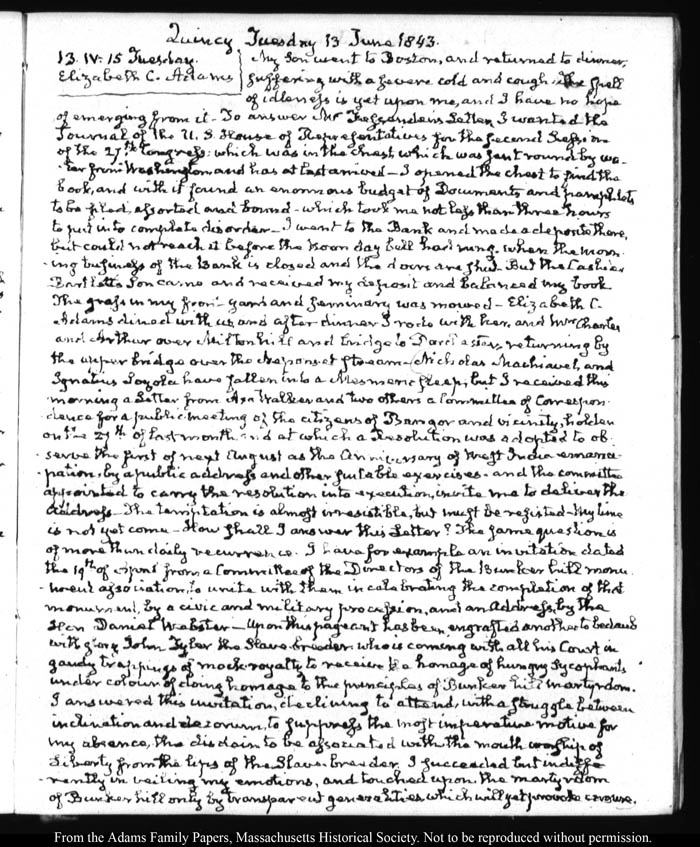 Quincy Tuesday 13 June 1843.
13. IV:15 Tuesday.
Elizabeth C. Adams
My Son went to Boston, and returned to dinner,
suffering with a severe cold and cough. The spell
of idleness is yet upon me, and I have no hope
of emerging from it. To answer Mr Fessenden's Letter, I wanted the
Journal of the U. S. House of Representatives for the second Session
of the 27th Congress, which was in the chest which was sent round by wa-
ter from Washington and has at last arrived. I opened the chest to find the
book, and with it found an enormous budget of Documents and pamphlets
to be filed, assorted and bound - which took me not less than three hours
to put into complete disorder - I went to the Bank and made a deposit there,
but could not reach it before the noon day bell had rung, when the morn-
ing business of the Bank is closed and the doors are shut. But the Cashier
Bartlett's Son came and received my deposit and balanced my book
The grass in my front yard and seminary was mowed - Elizabeth C.
Adams dined with us, and after dinner I rode with her, and Mrs Charles
and Arthur over Milton hill and bridge to Dorchester, returning by
the upper bridge over the Neponset stream - Nicholas Machiavel, and
Ignatius Loyola have fallen into a Mesmeric sleep, but I received this
morning a Letter from Asa Walker and two others a Committee of Correspon-
dence for a public meeting of the citizens of Bangor and vicinity, holden
on the 27th of last month and at which a Resolution was adopted to ob-
serve the first of next August as the anniversary of West India emanci-
pation, by a public address and other suitable exercises - and the committee
appointed to carry the resolution into execution, invite me to deliver the
Address - The temptation is almost irresistible, but must be resisted - My time
is not yet come - How shall I answer this Letter? The same question is
of more than daily recurrence. I have for example an invitation dated
the 19th of April from a Committee of the Directors of the Bunker hill monu-
ment association, to unite with them in celebrating the completion of that
monument, by a civic and military procession, and an Address, by the
Hon Daniel Webster - Upon this pageant has been engrafted another to bedaub
with glory John Tyler the Slave-breeder, who is coming with all his Court in
gaudy trappings of mock royalty to receive the homage of hungry sycophants
under colour of doing homage to the principles of Bunker hill martyrdom.
I answered this invitation, declining to attend, with a struggle between
inclination and decorum, to suppress the most imperative motive for
my absence, the disdain to be associated with the mouth worship of
Liberty from the lips of the Slave-breeder. I succeeded but indiffe-
rently in veiling my emotions, and touched upon the martyrdom
of Bunker hill only by transparent generalities which will yet provoke
From the Adams Family Papers, Massachusetts Historical Society. Not to be reproduced without permission.